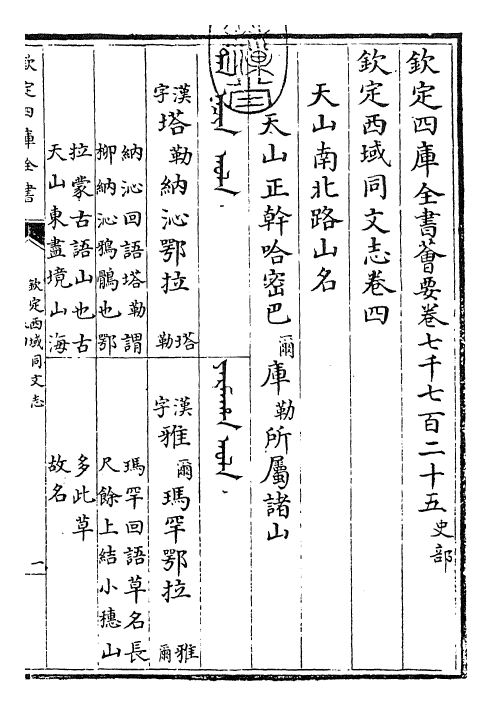 欽定四庫全書薈要卷七千七百二十五史部
欽定西域同文志卷四
天山南北路山名
天山正幹哈密巴爾庫勒所屬諸山
漢字塔勒納沁鄂拉 塔勒
納沁回語塔勒謂
柳納沁鴉鶻也鄂
拉蒙古語山也古
天山東盡境山海
漢字雅爾瑪罕鄂拉 雅爾
瑪罕回語草名長
尺餘上結小穗山
多此草
故名
欽定四庫全書
欽定西域同文志
一